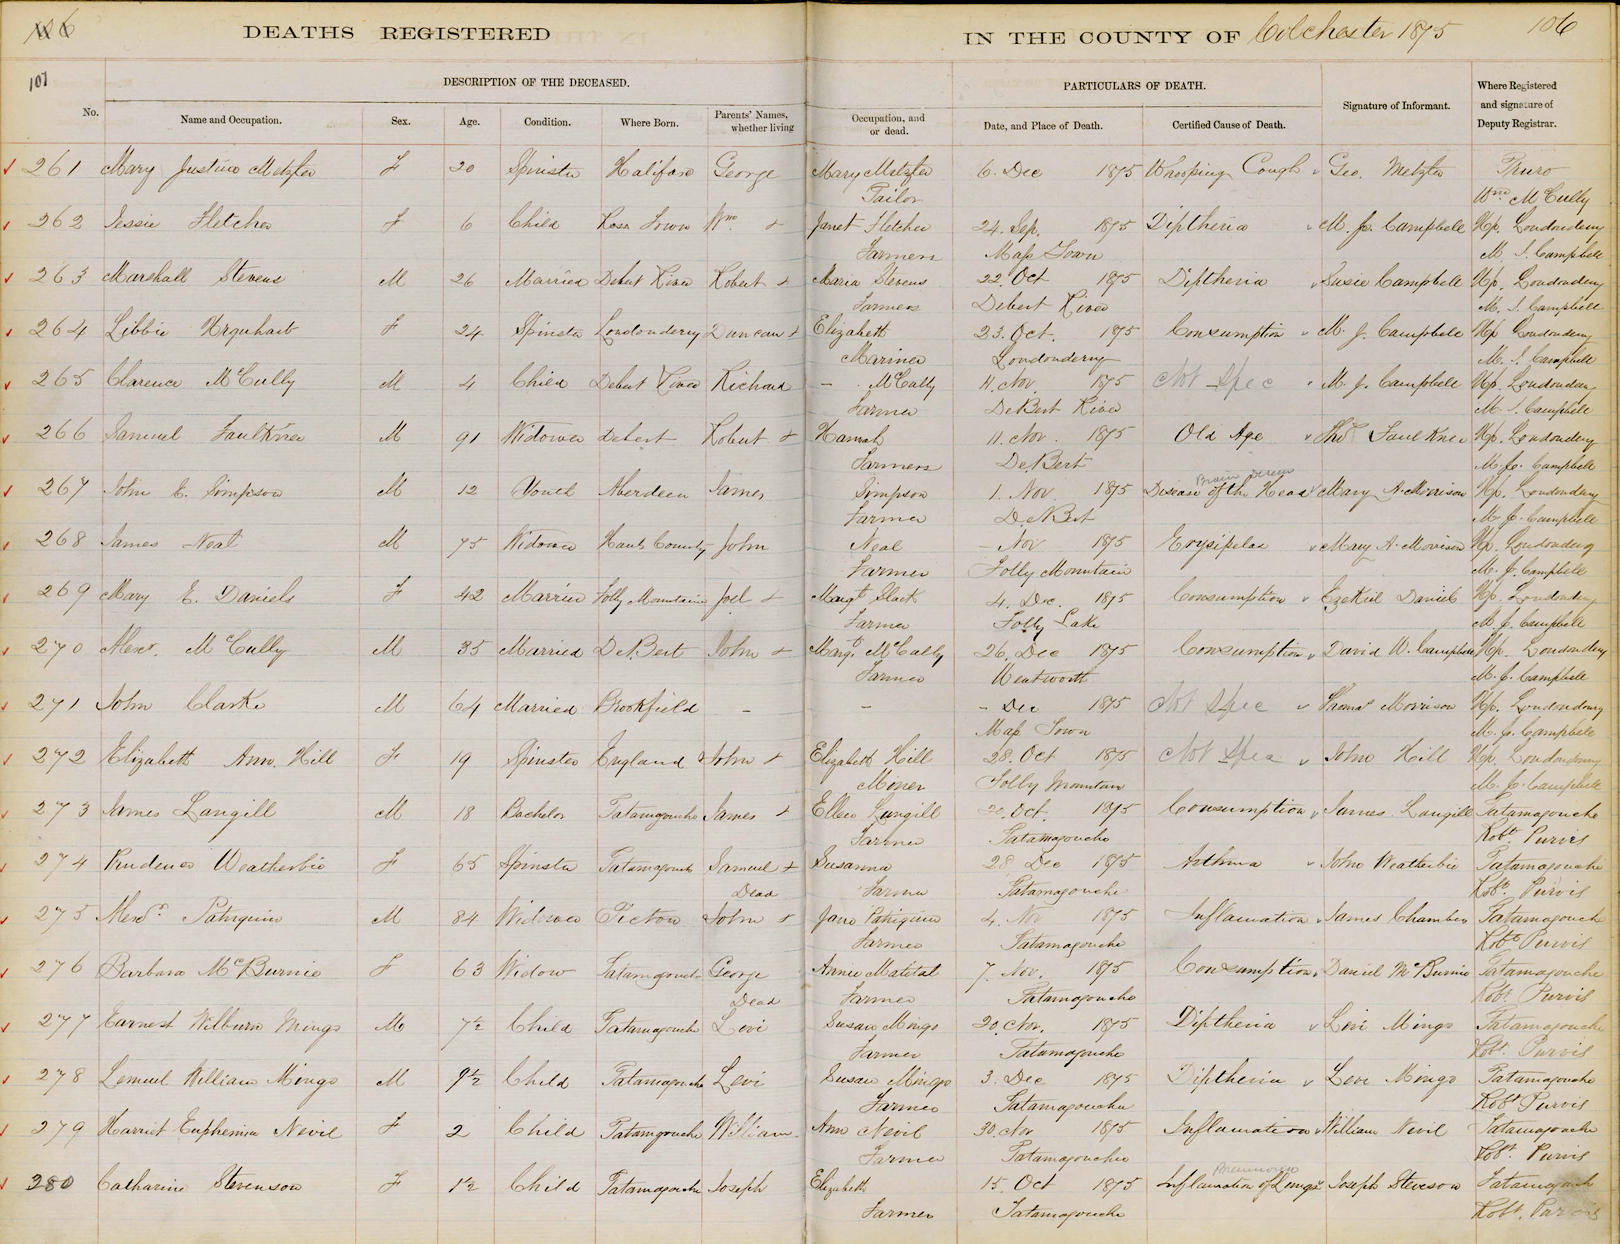 106 DEATHS REGISTERED IN THE COUNTY OF Colchester 1875 106
107
DESCRIPTION OF THE DECEASED. PARTICULARS OF DEATH.
No. Name and Occupation. Sex. Age. Condition. Where Born. Parents' Names, whether living Occupation, and or dead. Date, and Place of Death. Certified Cause of Death. Signature of Informant. Where Registered and signature of Deputy Registrar.
261 Mary Justine Metzler F 20 Spinster Halifax George Mary Metzler 6. Dec 1875 Whooping Cough Geo. Metzler Truro
Tailor Wm McCully
262 Jessie Fletcher F 6 Child Ross Town Wm. + Janet Fletcher 24. Sep. 1875 Diptheria M. J. Campbell Up. Londonderry
Farmers Map Town M. J. Campbell
263 Marshall Stevens M 26 Married Debert River Robert + Maria Stevens 22. Oct 1875 Diptheria Susie Campbell Up. Londonderry
Farmers Debert River M. J. Campbell
264 Libbie Urquhart F 24 Spinster Londonderry Duncan + Elizabeth 23. Oct. 1875 Consumption M. J. Campbell Up Londonderry
Mariner Londonderry M. J. Campbell
265 Clarence McCully M 4 Child Debert River Richard - McCully 11. Nov. 1875 Not Spec M. J. Campbell Up. Londonderry
Farmer DeBert River M. J. Campbell
266 Samuel Faulkner M 91 Widower Debert Robert + Hannah 11. Nov. 1875 Old Age Thos Faulkner Up. Londonderry
Farmers DeBert M. J. Campbell
267 John E. Simpson M 12 Youth Aberdeen James Simpson 1. Nov. 1875 Disease of the Head Mary A. Morrison Up. Londonderry
Farmer DeBert M. J. Campbell
268 James Neal M 75 Widower Hants County John Neal - Nov 1875 Erysipelas Mary A. Morrison Up. Londonderry
Farmer Folly Mountain M. J. Campbell
269 Mary E. Daniels F 42 Married Folly Mountain Joel + Margt Slack 4. Dec. 1875 Consumption Ezekiel Daniels Up. Londonderry
Farmer Folly Lake M. J. Campbell
270 Alexr. McCully M 35 Married DeBert John + Margt. McCully 26. Dec 1875 Consumption David W. Campbell Up. Londonderry
Farmer Wentworth M. J. Campbell
271 John Clarke M 64 Married Brookfield - - - Dec 1875 Not Spec Thomas Morrison Up. Londonderry
Map Town M. J. Campbell
272 Elizabeth Ann Hill F 19 Spinster England John + Elizabeth Hill 28. Oct 1875 Not Spec John Hill Up. Londonderry
Miner Folly Mountain M. J. Campbell
273 James Langill M 18 Bachelor Tatamagouche James + Ellen Langill 20. Oct. 1875 Consumption James Langill Tatamagouche
Farmer Tatamagouche Robt Purvis
274 Prudence Weatherbie F 65 Spinster Tatamagouche Samuel + Susanna 28. Dec 1875 Asthma John Weatherbie Tatamagouche
Dead Farmer Tatamagouche Robt. Purvis
275 Alexdr. Patriquin M 84 Widower Pictou John + Jane Patriquin 4. Nov 1875 Inflamation James Chambers Tatamagouche
Farmer Tatamagouche Robt Purvis
276 Barbara McBurnie F 63 Widow Tatamagouche George Annie Matatal 7. Nov. 1875 Consumption Daniel McBurnie Tatamagouche
Dead Farmer Tatamagouche Robt Purvis
277 Earnest Wilburn Mingo M 7½ Child Tatamagouche Levi Susan Mingo 20. Nov. 1875 Diptheria Levi Mingo Tatamagouche
Farmer Tatamagouche Robt. Purvis
278 Lemuel William Mingo M 9½ Child Tatamagouche Levi Susan Mingo 3. Dec 1875 Diptheria Levi Mingo Tatamagouche
Farmer Tatamagouche Robt Purvis
279 Harriet Euphemia Nevil F 2 Child Tatamagouche William Ann Nevil 30. Nov 1875 Inflamation William Nevil Tatamagouche
Farmer Tatamagouche Robt. Purvis
280 Catharine Stevenson F 1½ Child Tatamagouche Joseph Elizabeth 15. Oct 1875 Inflamation of Lungs Joseph Stevenson Tatamagouche
Farmer Tatamagouche Robt. Purvis